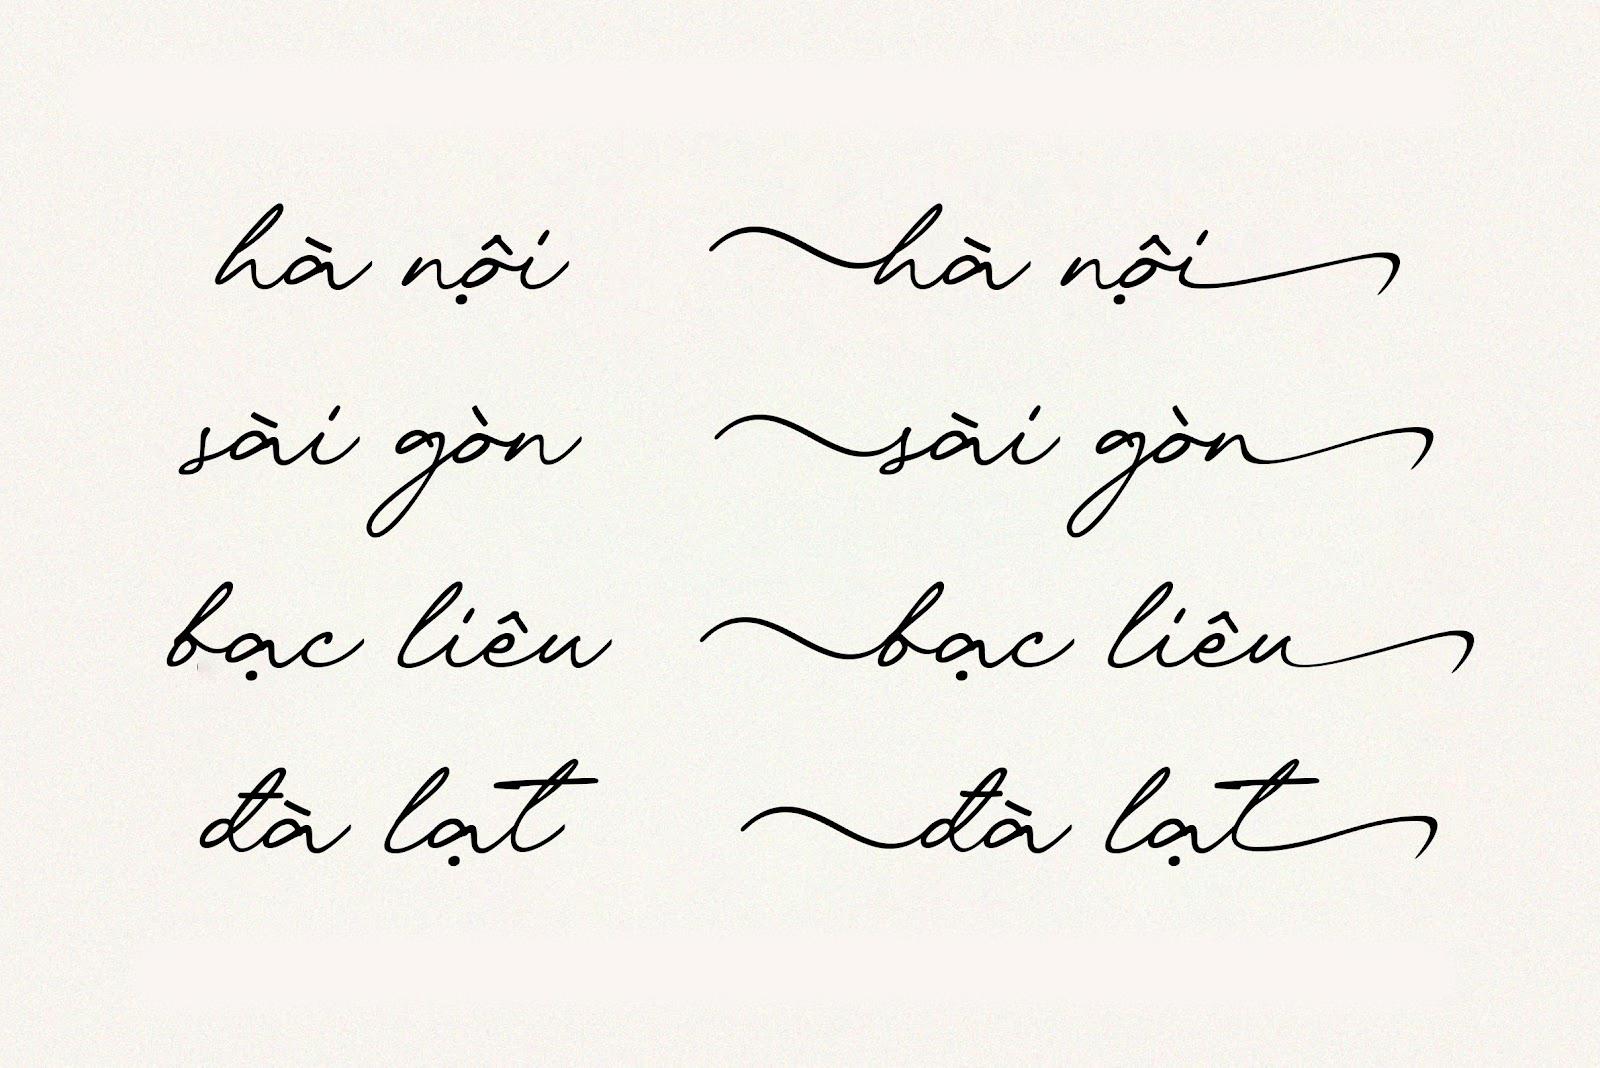 hà nội hà nội
sài gòn sài gòn
bạc liêu bạc liêu
đà lạt đà lạt